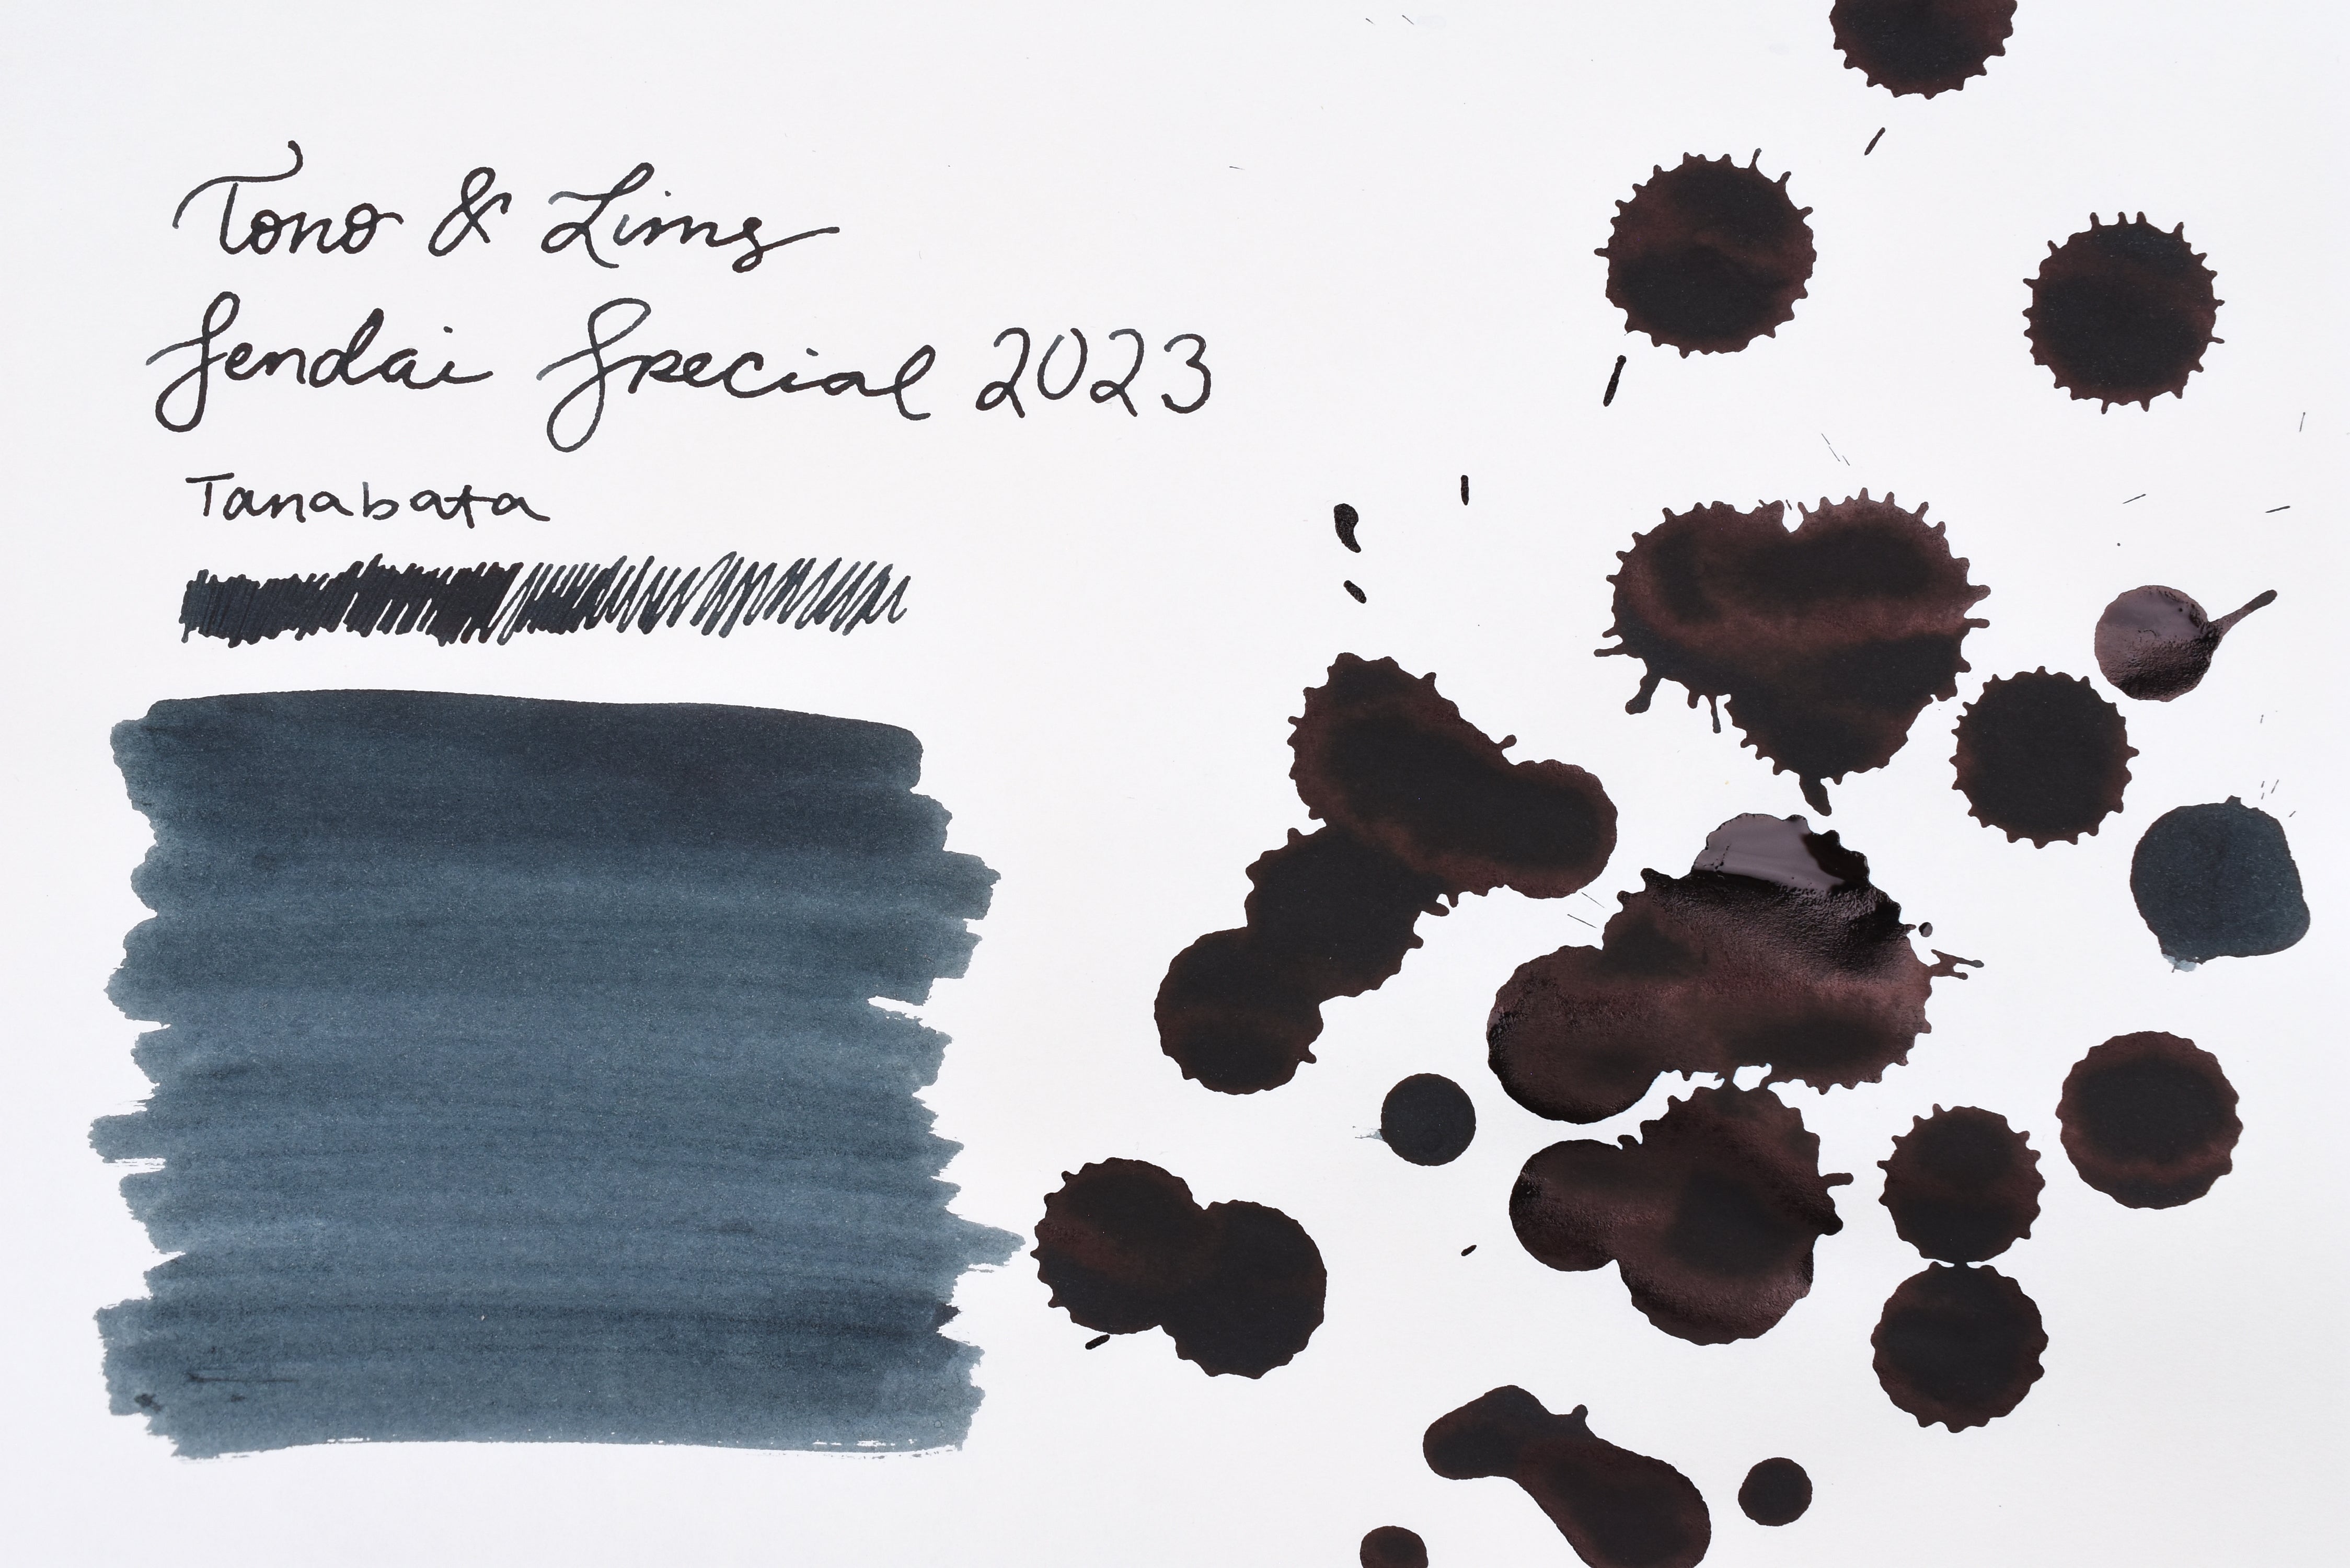 Tono & Lims
Sendai Special 2023
Tanabata